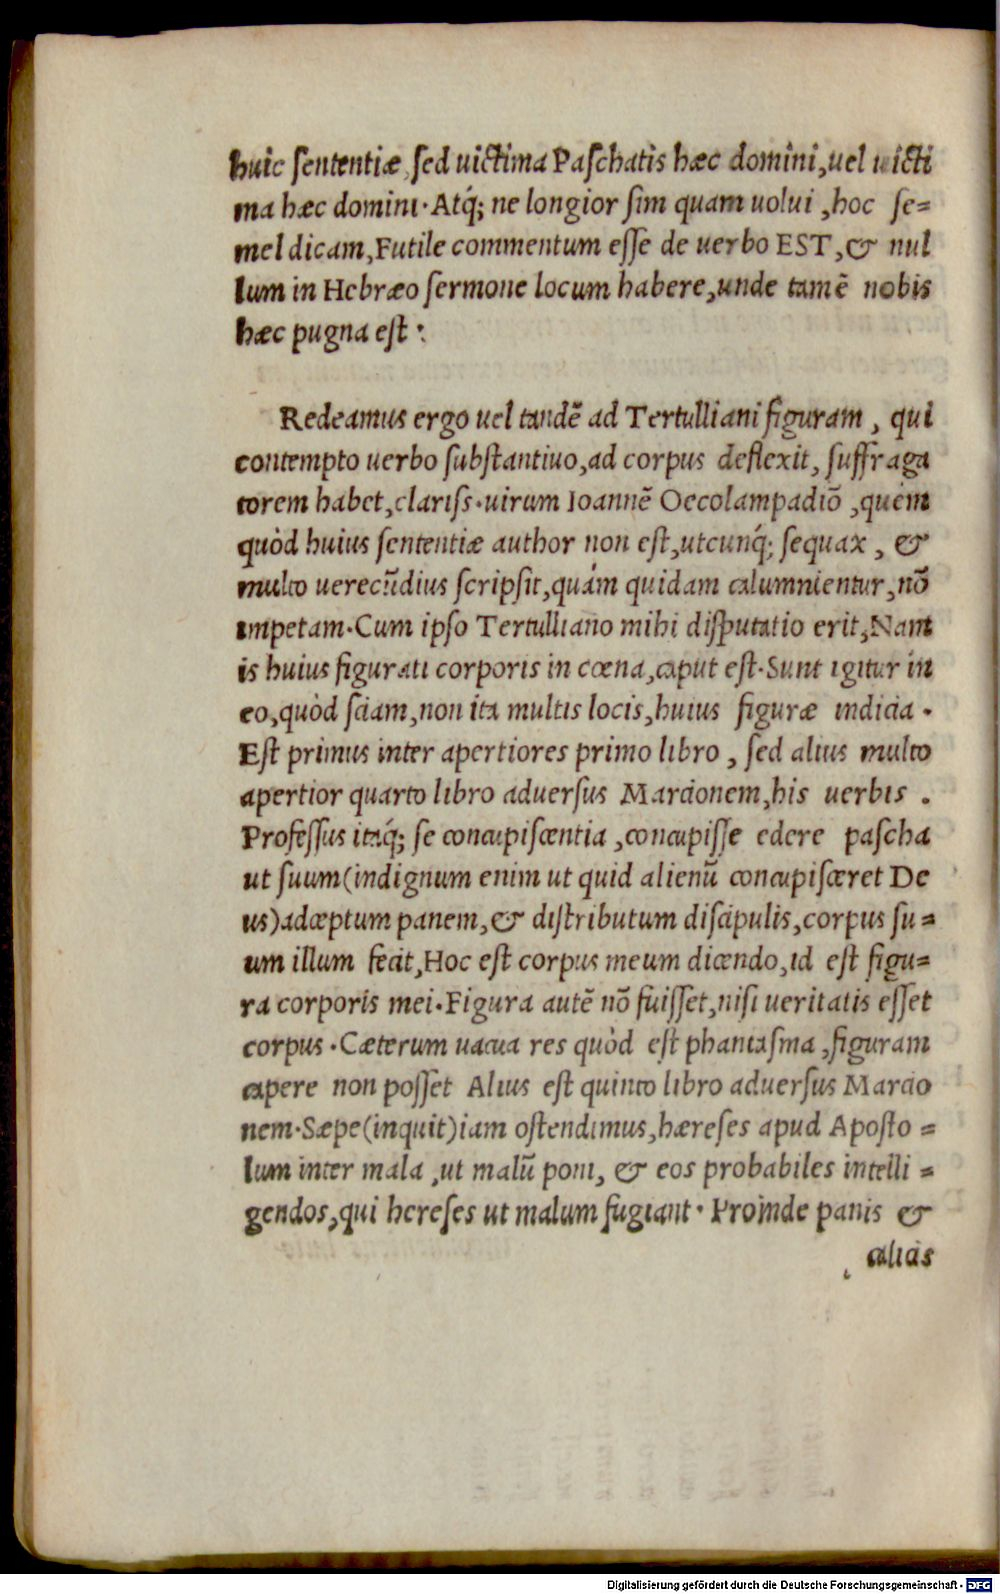 huic sententiæ, sed uictima Paschatis hæc domini, uel uicti
ma hæc domini. Atq́; ne longior sim quam uolui, hoc se=
mel dicam, Futile commentum esse de uerbo EST, & nul
lum in Hebræo sermone locum habere, unde tamē nobis
hæc pugna est.
Redeamus ergo uel tandē ad Tertulliani figuram, qui
contempto uerbo substantiuo, ad corpus deflexit, suffraga
torem habet, clariss. uirum Ioannē Oecolampadiō, quem
quòd huius sententiæ author non est, utcunq́; sequax, &
multo uerecūdius scripsit, quám quidam calumnientur, nō
impetam. Cum ipso Tertulliano mihi disputatio erit, Nam
is huius figurati corporis in cœna, caput est. Sunt igitur in
eo, quòd sciam, non ita multis locis, huius figuræ indicia.
Est primus inter apertiores primo libro, sed alius multo
apertior quarto libro aduersus Marcionem, his uerbis.
Professus itaq́; se concupiscentia, concupisse edere pascha
ut suum (indignum enim ut quid alienū concupisceret De
us) adceptum panem, & distributum discipulis, corpus su=
um illum fecit, Hoc est corpus meum dicendo, id est figu=
ra corporis mei. Figura autē nō fuisset, nisi ueritatis esset
corpus. Cæterum uacua res quòd est phantasma, figuram
capere non posset Alius est quinto libro aduersus Marcio
nem. Sæpe (inquit) iam ostendimus, hæreses apud Aposto=
lum inter mala, ut malū poni, & eos probabiles intelli=
gendos, qui hereses ut malum fugiant. Proinde panis &
alias
Digitalisierung gefördert durch die Deutsche Forschungsgemeinschaft - DFG